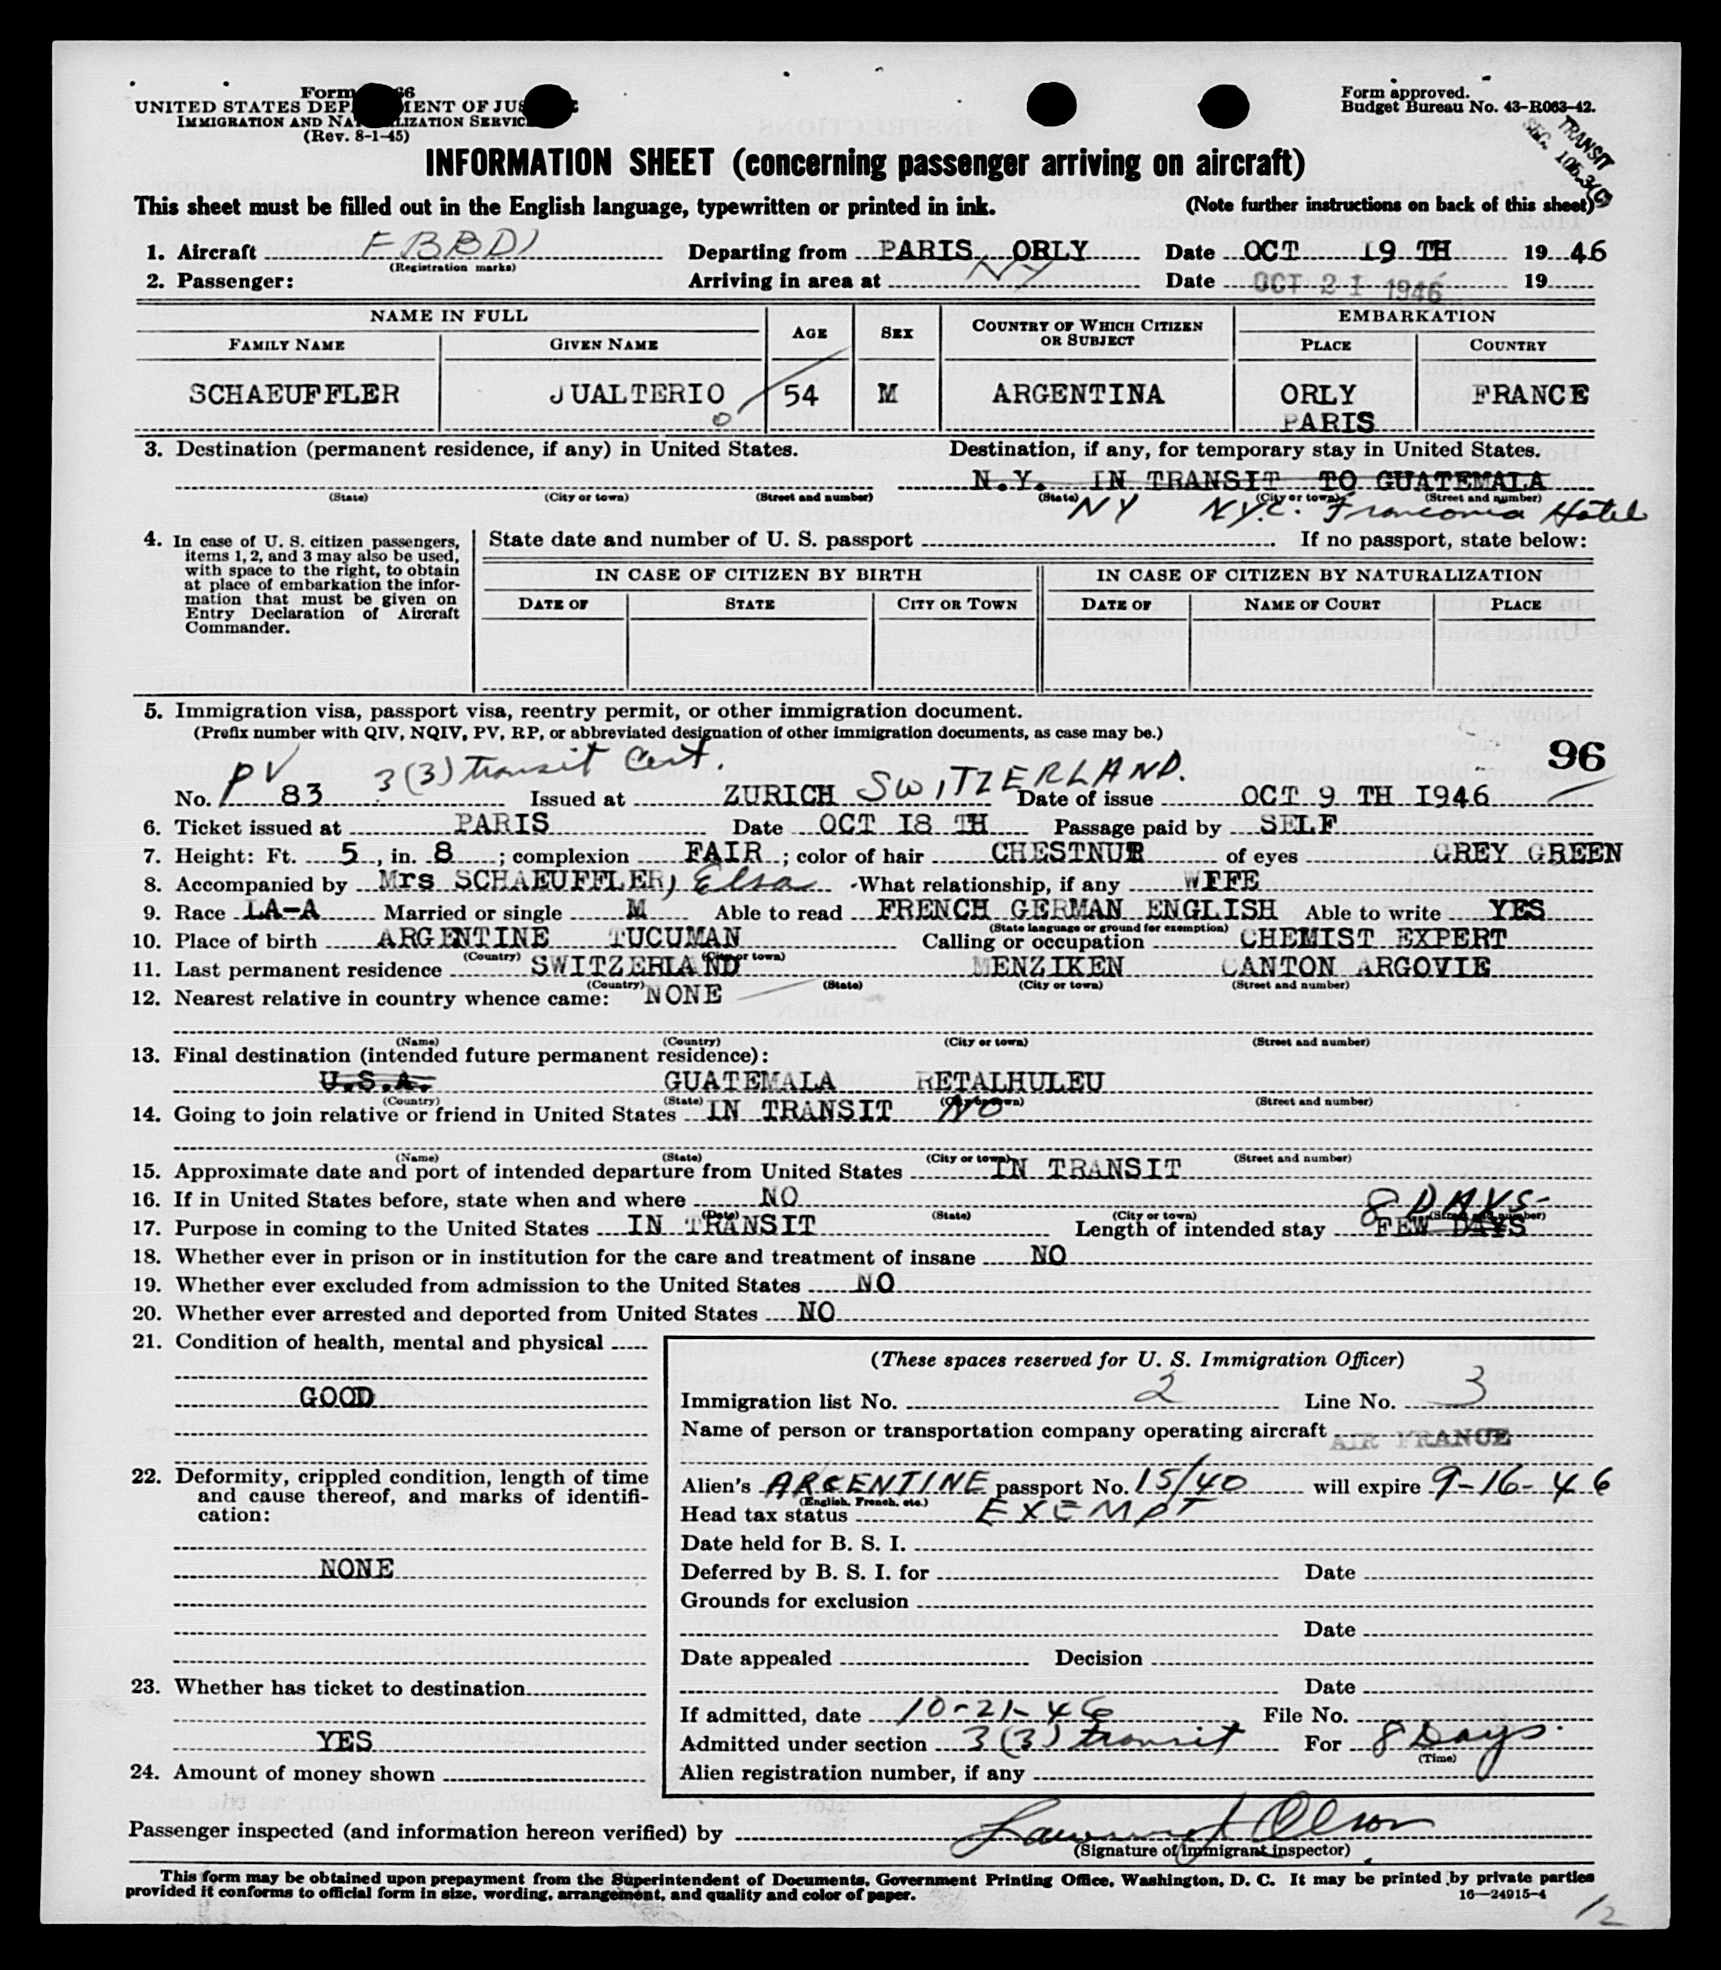 Form 66
UNITED STATES DEP MENT OF JUS E
IMMIGRATION AND NAT LIZATION SERVIC
(Rev. 8-1-45)
Form approved.
Budget Bureau No. 43-R063-42.
TRANSIT
INFORMATION SHEET (concerning passenger arriving on aircraft)
This sheet must be filled out in the English language, typewritten or printed in ink. (Note further instructions on back of this sheet)
1. Aircraft FBBDI Departing from PARIS ORLY Date OCT 19 TH 19 46
(Registration marks)
2. Passenger: Arriving in area at NY Date OCT 21 1946 19
NAME IN FULL AGE SEX COUNTRY OF WHICH CITIZEN OR SUBJECT EMBARKATION
FAMILY NAME GIVEN NAME PLACE COUNTRY
SCHAEUFFLER JUALTERIO 54 M ARGENTINA ORLY FRANCE
O PARIS
3. Destination (permanent residence, if any) in United States. Destination, if any, for temporary stay in United States.
N.Y. IN TRANSIT TO GUATEMALA
(State) (City or town) (Street and number) (State) (City or town) (Street and number)
NY NYC. Franconia Hotel
4. In case of U. S. citizen passengers, items 1, 2, and 3 may also be used, with space to the right, to obtain at place of embarkation the information that must be given on Entry Declaration of Aircraft Commander.
State date and number of U. S. passport If no passport, state below:
IN CASE OF CITIZEN BY BIRTH IN CASE OF CITIZEN BY NATURALIZATION
DATE OF STATE CITY OR TOWN DATE OF NAME OF COURT PLACE
5. Immigration visa, passport visa, reentry permit, or other immigration document.
(Prefix number with QIV, NQIV, PV, RP, or abbreviated designation of other immigration documents, as case may be.)
96
PV 3(3) transit Cert. SWITZERLAND.
No. 83 Issued at ZURICH Date of issue OCT 9 TH 1946
6. Ticket issued at PARIS Date OCT 18 TH Passage paid by SELF
7. Height: Ft. 5, in. 8; complexion FAIR; color of hair CHESTNUR of eyes GREY GREEN
8. Accompanied by Mrs SCHAEUFFLER, Elsa What relationship, if any WIFE
9. Race LA-A Married or single M Able to read FRENCH GERMAN ENGLISH Able to write YES
(State language or ground for exemption)
10. Place of birth ARGENTINE TUCUMAN Calling or occupation CHEMIST EXPERT
(Country) (City or town)
11. Last permanent residence SWITZERLAND MENZIKEN CANTON ARGOVIE
(Country) (State) (City or town) (Street and number)
12. Nearest relative in country whence came: NONE
(Name) (Country) (City or town) (Street and number)
13. Final destination (intended future permanent residence):
U.S.A. GUATEMALA RETALHULEU
(Country) (State) (City or town) (Street and number)
14. Going to join relative or friend in United States IN TRANSIT NO
(Name) (State) (City or town) (Street and number)
15. Approximate date and port of intended departure from United States IN TRANSIT
16. If in United States before, state when and where NO
(Date) (State) (City or town) (Street and number)
8 DAYS-
17. Purpose in coming to the United States IN TRANSIT Length of intended stay FEW DAYS
18. Whether ever in prison or in institution for the care and treatment of insane NO
19. Whether ever excluded from admission to the United States NO
20. Whether ever arrested and deported from United States NO
21. Condition of health, mental and physical
GOOD
22. Deformity, crippled condition, length of time and cause thereof, and marks of identification:
NONE
23. Whether has ticket to destination
YES
24. Amount of money shown
(These spaces reserved for U. S. Immigration Officer)
Immigration list No. 2 Line No. 3
Name of person or transportation company operating aircraft AIR FRANCE
Alien's ARGENTINE passport No. 15/40 will expire 9-16-46
(English, French, etc.)
Head tax status EXEMPT
Date held for B. S. I.
Deferred by B. S. I. for Date
Grounds for exclusion
Date
Date appealed Decision
Date
If admitted, date 10-21-46 File No.
Admitted under section 3(3) transit For 8 Days.
(Time)
Alien registration number, if any
Passenger inspected (and information hereon verified) by Olson
(Signature of Immigrant Inspector)
This form may be obtained upon prepayment from the Superintendent of Documents, Government Printing Office, Washington, D. C. It may be printed by private parties
provided it conforms to official form in size, wording, arrangement, and quality and color of paper. 16—24915-4
12